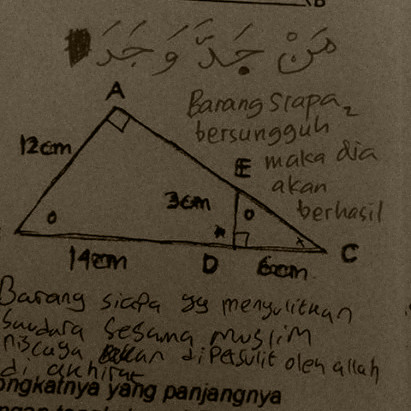 B
مَنْ جَدَّ وَجَدَ
Barang siapa2
bersungguh
maka dia
akan
berhasil
A
12cm
E
3cm
o
o
x
D
C
14cm
6cm
Barang siapa yg menyulitkan
Saudara sesama muslim
niscaya akan dipersulit oleh allah
di akhirat
ongkatnya yang panjangnya